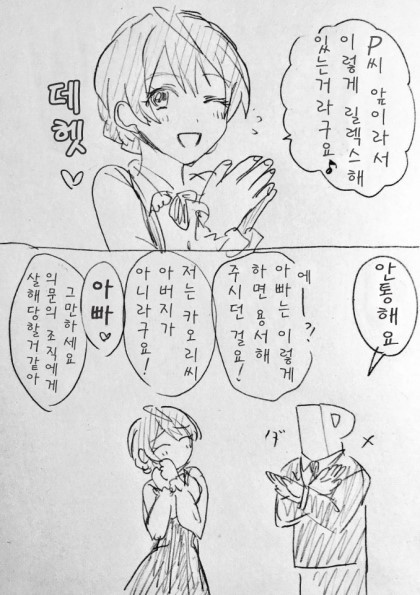 P씨 앞이라서
이렇게 릴렉스해
있는거라구요♪
데헷♡
안통해요
에ー?!
아빠는 이렇게
하면 용서해
주시던 걸요!
저는 카오리씨
아버지가
아니라구요!
아빠♥
그만하세요
의문의 조직에게
살해당할거같아
P